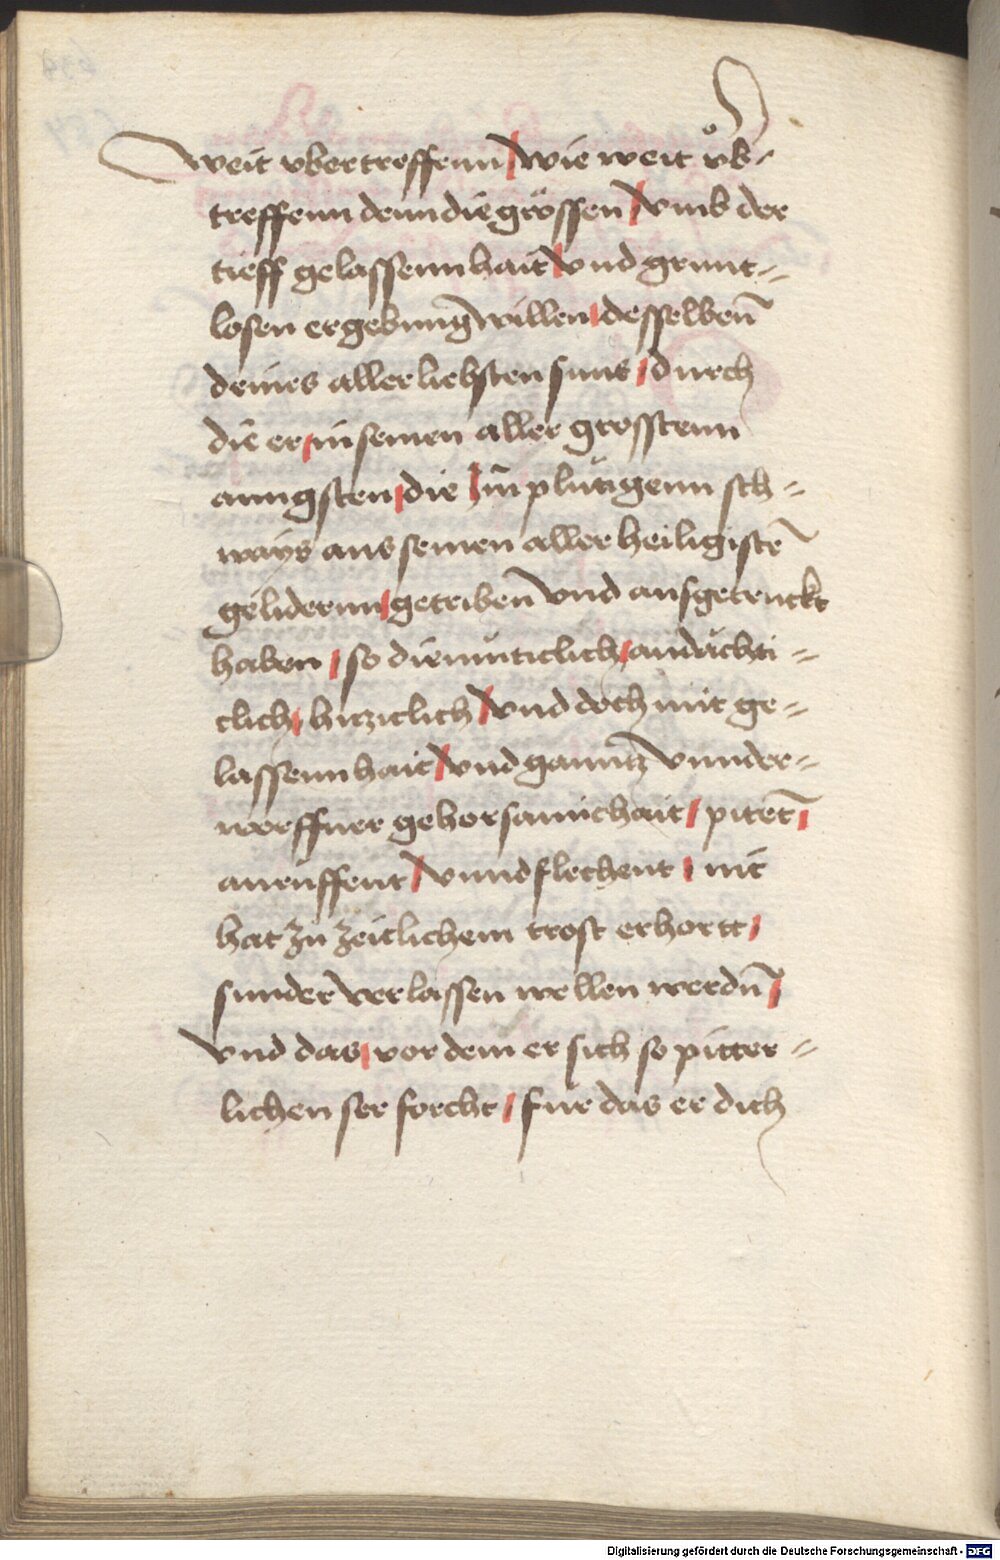 weit vbertreffenn / wie weit vb-
treffenn denn die grössen / vmb der
tieff gelassennhait / vnd grunt=
losen ergebung willen / desselbenn̄
deines allerliebsten suns / durch
die er / in seinen aller grosstenn
anngsten / die / im plutigenn sch=
ways aus seinen aller heiligistē
gelidernn / getriben vnd ausgetruckt
haben / so diemuticlich / andachti=
clich / hitziclich / vnd doch mit ge=
lassennhait / vnd ganntz vnnder=
worffner gehorsamichait / pitet /
anruffent / vnnd flechent / nit
hat zu zeitlichem trost erhortt /
sunder verlassen wellen werdn̄ /
vnd das / vor dem er sich so pitter=
lichen ser forcht / fur das er dich
Digitalisierung gefördert durch die Deutsche Forschungsgemeinschaft - DFG